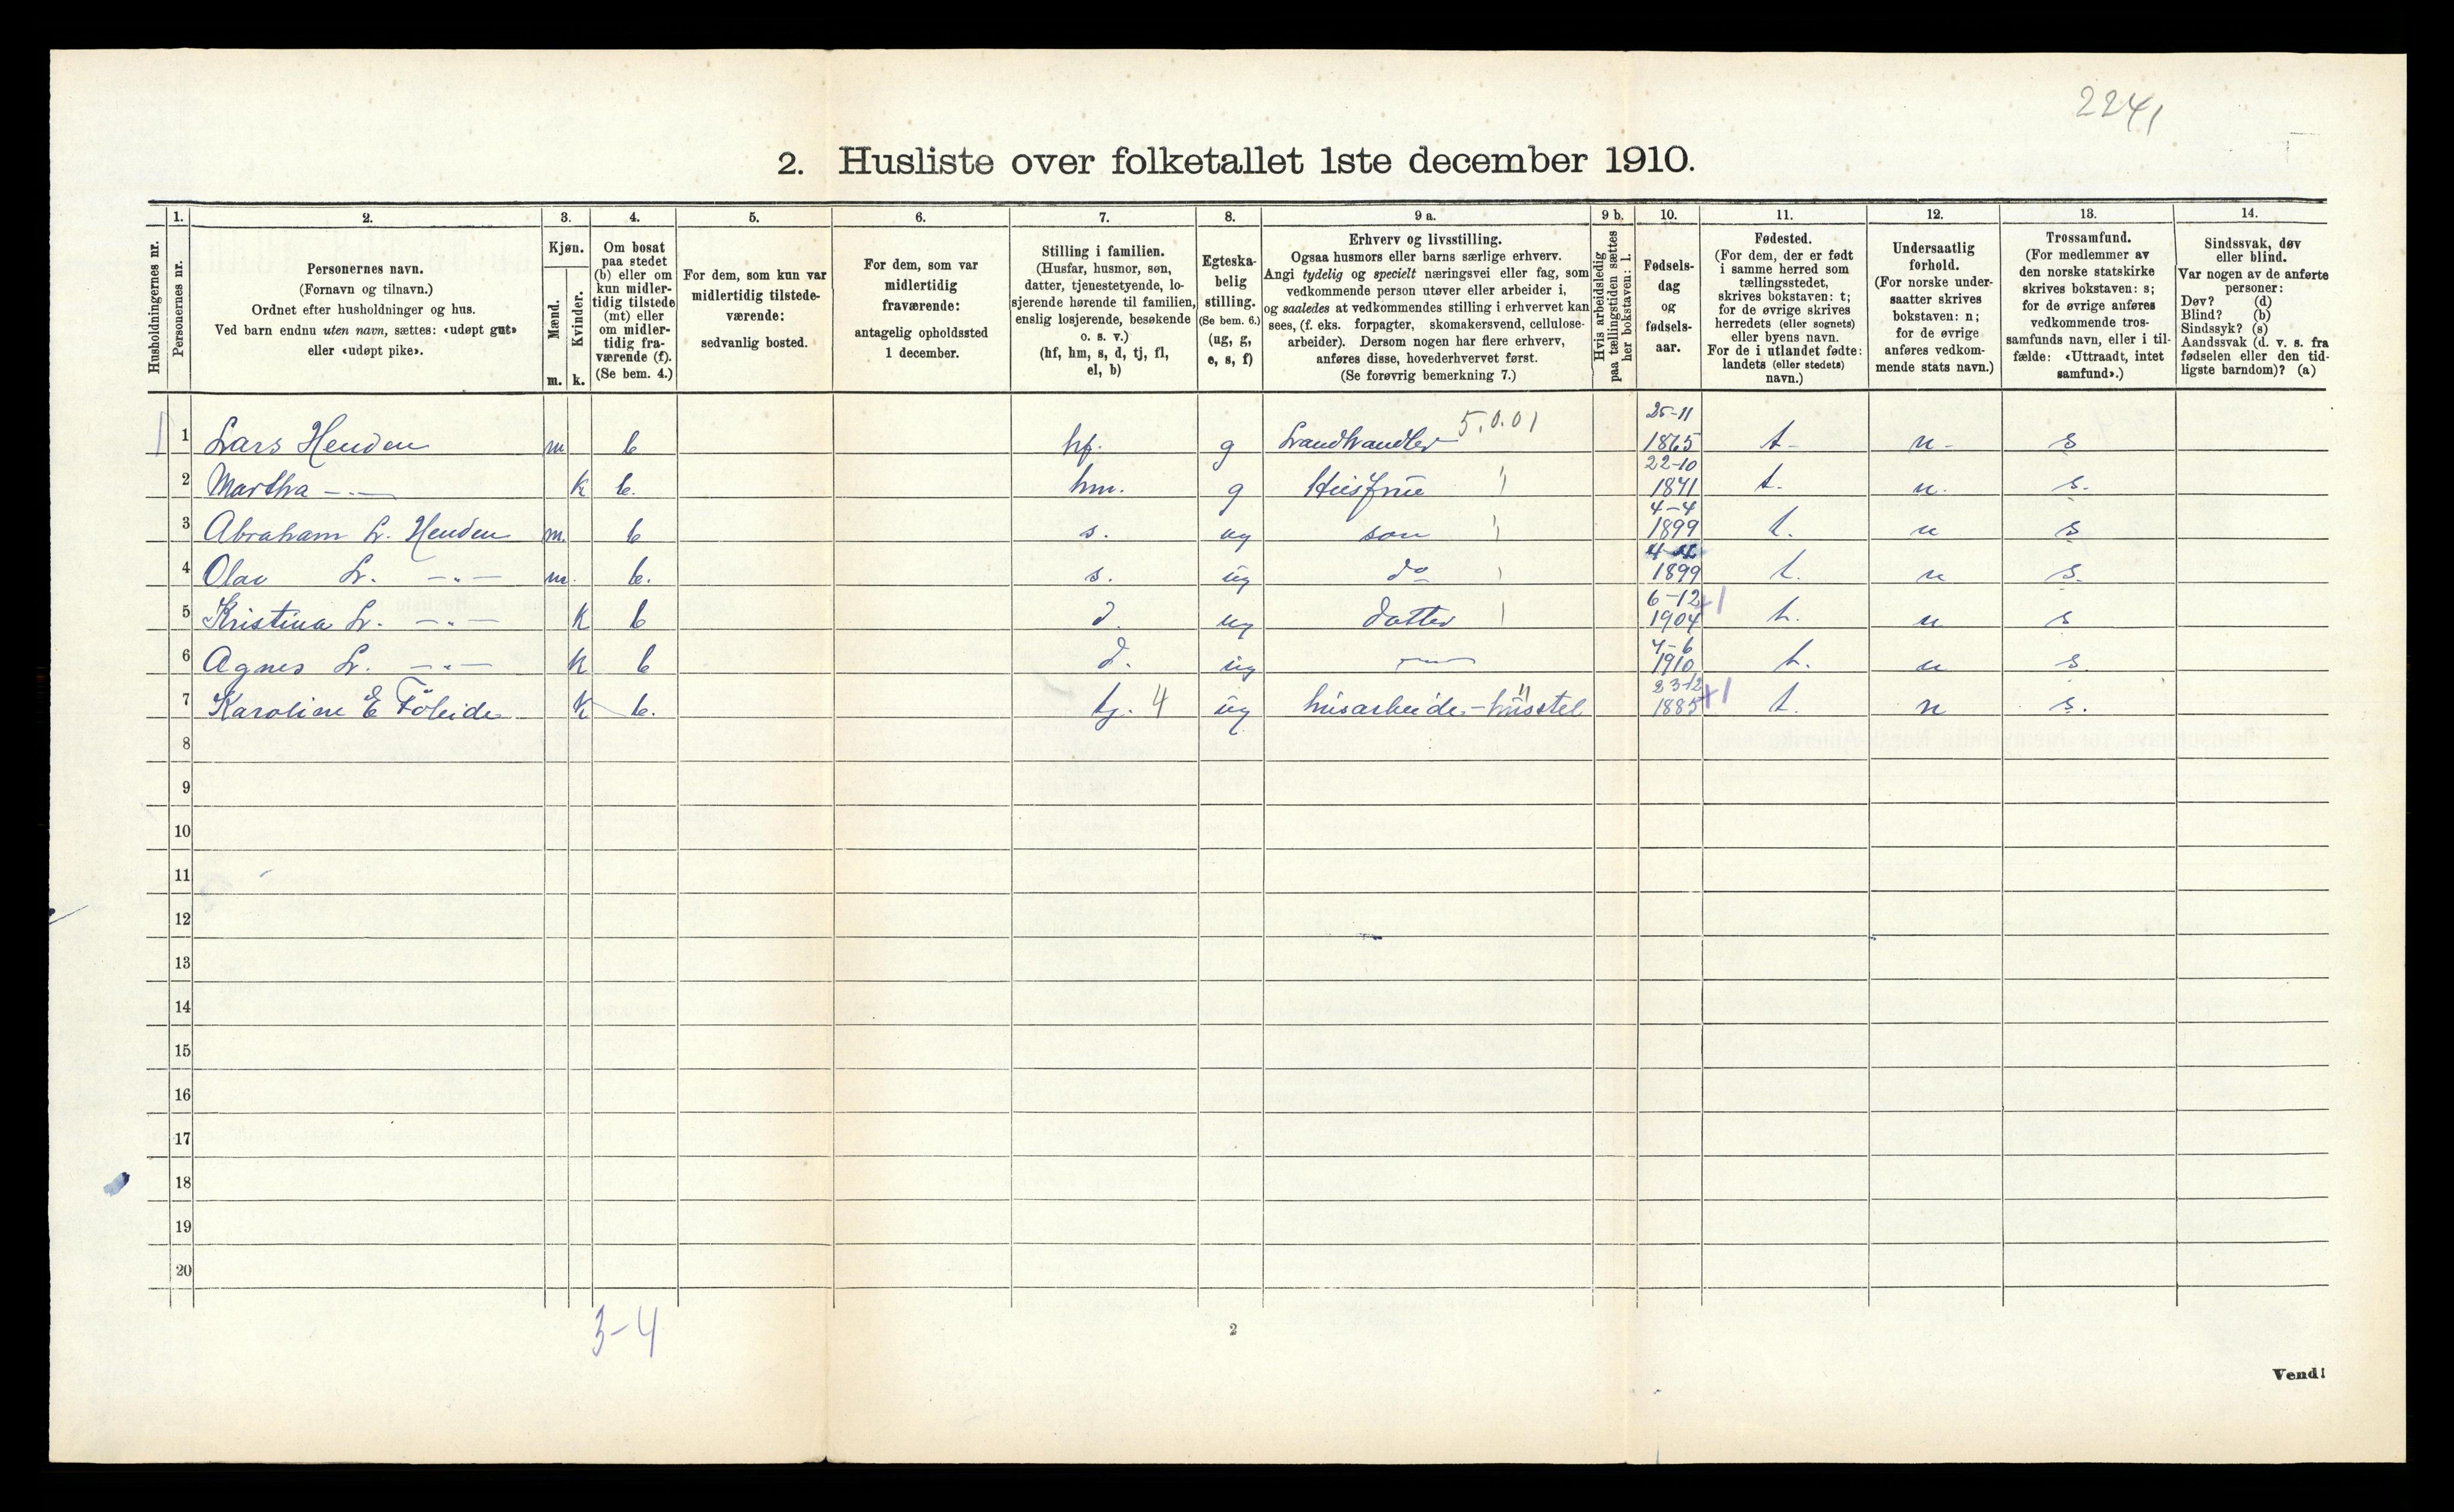 2241
2. Husliste over folketallet 1ste december 1910.
1. 2. 3. 4. 5. 6. 7. 8. 9 a. 9 b. 10. 11. 12. 13. 14.
Husholdningernes nr.
Personernes nr.
Personernes navn.
(Fornavn og tilnavn.)
Ordnet efter husholdninger og hus.
Ved barn endnu uten navn, sættes: «udøpt gut»
eller «udøpt pike».
Kjøn.
Mænd.
Kvinder.
m. k.
Om bosat
paa stedet
(b) eller om
kun midler-
tidig tilstede
(mt) eller
om midler-
tidig fra-
værende (f).
(Se bem. 4.)
For dem, som kun var
midlertidig tilstede-
værende:
sedvanlig bosted.
For dem, som var
midlertidig
fraværende:
antagelig opholdssted
1 december.
Stilling i familien.
(Husfar, husmor, søn,
datter, tjenestetyende, lo-
sjerende hørende til familien,
enslig losjerende, besøkende
o. s. v.)
(hf, hm, s, d, tj, fl,
el, b)
Egteska-
belig
stilling.
(Se bem. 6.)
(ug, g,
e, s, f)
Erhverv og livsstilling.
Ogsaa husmors eller barns særlige erhverv.
Angi tydelig og specielt næringsvei eller fag, som
vedkommende person utøver eller arbeider i,
og saaledes at vedkommendes stilling i erhvervet kan
sees, (f. eks. forpagter, skomakersvend, cellulose-
arbeider). Dersom nogen har flere erhverv,
anføres disse, hovederhvervet først.
(Se forøvrig bemerkning 7.)
Hvis arbeidsledig
paa tællingstiden sættes
her bokstaven: l.
Fødsels-
dag
og
fødsels-
aar.
Fødested.
(For dem, der er født
i samme herred som
tællingsstedet,
skrives bokstaven: t;
for de øvrige skrives
herredets (eller sognets)
eller byens navn.
For de i utlandet fødte:
landets (eller stedets)
navn.)
Undersaatlig
forhold.
(For norske under-
saatter skrives
bokstaven: n;
for de øvrige
anføres vedkom-
mende stats navn.)
Trossamfund.
(For medlemmer av
den norske statskirke
skrives bokstaven: s;
for de øvrige anføres
vedkommende tros-
samfunds navn, eller i til-
fælde: «Uttraadt, intet
samfund».)
Sindssvak, døv
eller blind.
Var nogen av de anførte
personer:
Døv? (d)
Blind? (b)
Sindssyk? (s)
Aandssvak (d. v. s. fra
fødselen eller den tid-
ligste barndom)? (a)
1 Lars Henden m b hf. g Landhandler 5.0.01 25-11 1865 t- n- s
2 Martha -"- k b. hm. g Husfrue 22-10 1871 t. n. s.
3 Abraham L. Henden m. b s. ug søn 4-4 1899 t. n s
4 Olav L. -"- m. b. s. ug do 1899 t. n s.
5 Kristina L. -"- k b d. ug datter 6-12 1904 t. n s
6 Agnes L. -"- k b d. ug 7-6 1910 t. n s.
7 Karoline E Föleide k b. tj. 4 ug husarbeide-husstel 23-12 1885 t. n s.
8
9
10
11
12
13
14
15
16
17
18
19
20
3-4
2
Vend!